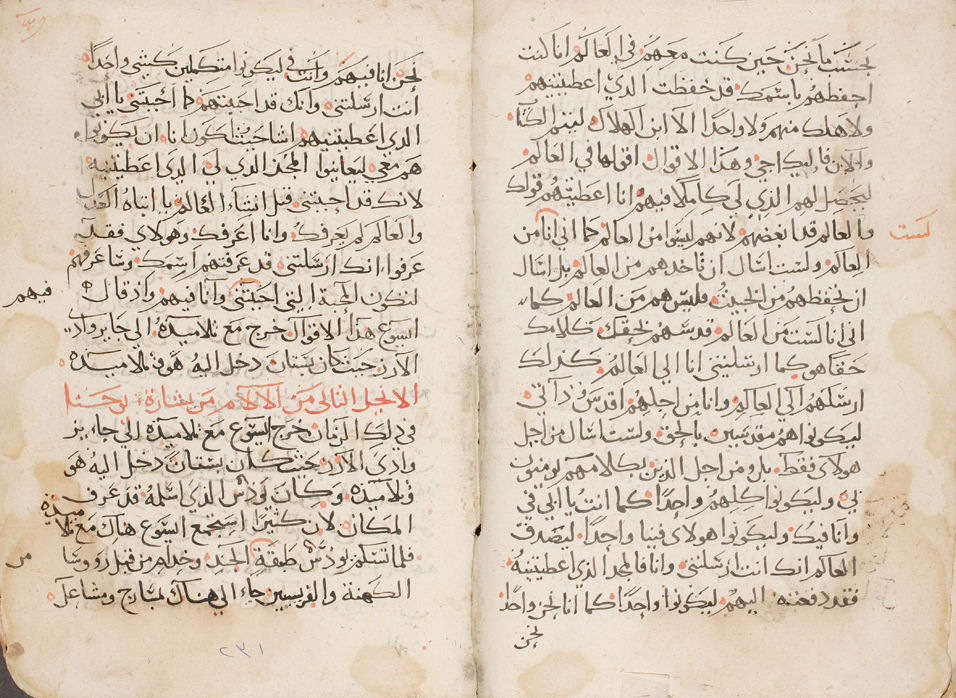 بحيث ما نحن حين كنت معهم في العالم انا كنت
احفظهم باسمك قد حفظت الذي اعطيتنيهم
ولا هلك منهم ولا واحدا الا ابن الهلاك ليتم الكتاب
والان فاليك اجي وهذا الاقوال اقولها في العالم
ليحصل لهم الذي لي كاملا فيهم وانا اعطيتهم قولك
والعالم قد ابغضهم لانهم ليسوا من العالم كما اني انا من
لست
العالم ولست اسال ان تاخدهم من العالم بل اسال
ان تحفظهم من الخبيث فليس هم من العالم كما
اني انا لست من العالم قدسهم بحقك كلامك
حقا هو كما ارسلتني انا الي العالم كذلك
ارسلهم الي العالم وانا من اجلهم اقدس ذاتي
ليكونوا هم مقدسين بالحق ولست اسال من اجل
هولاي فقط بل ومن اجل الدين بكلامهم يومنون
بي وليكونوا كلهم واحدا كما انت يا ابي في
وانا فيك وليكونوا هولاي فينا واحدا ليصدق
العالم انك انت ارسلتني وانا فالمجد الذي اعطيتنيه
فقد دفعته اليهم ليكونوا واحدا كما انا نحن واحد
نحن
نحن انا فيهم وانت في ليكونوا متكملين كشي واحدا
انت ارسلتني وانك قد احببتهم كما احببتني يا ابي
الذي اعطيتنيهم اشا حيث اكون انا ان يكونوا
هم معي ليعاينوا المجد الذي لي الذي اعطيتنيه
لانك قد احببتني قبل انشاء العالم يا ابتاه العدل
والعالم لم يعرفك وانا اعرفك وهولاي فقد
عرفوا انك ارسلتني قد عرفتهم اسمك وساعرفهم
لتكون المحبة التي احببتني وانا فيهم واذ قال
فيهم
اليسوع هذا الاقوال خرج مع تلاميده الي جايز واد
الارز حيث كان بستان دخل اليه هو وتلاميده
الانجيل الثاني من الالام من بشارة يوحنا
في دلك الزمان خرج اليسوع مع تلاميده الي جايز
وادي الارز حيث كان بستان دخل اليه هو
وتلاميده وكان يودس الذي اسلمه قد عرف
المكان لان كثيرا استجمع اليسوع هناك مع تلاميده
فلما تسلم يودس طبقة الجند وخدام من قبل روسا
من
الكهنة والفريسيين جاء الي هناك بمسارج ومشاعل
٢٣١